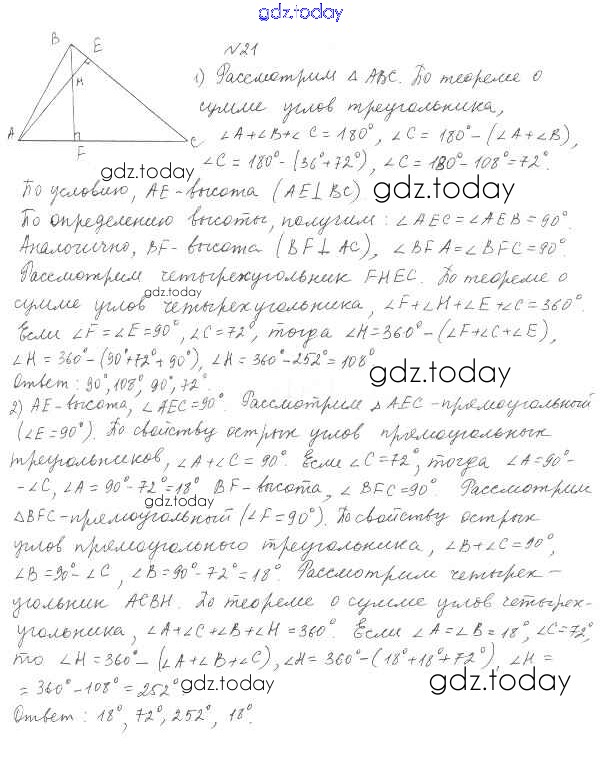 gdz.today
№21
B
E
H
A
F
C
1) Рассмотрим △ ABC. По теореме о
сумме углов треугольника,
∠A+∠B+∠C = 180°, ∠C = 180° - (∠A+∠B),
∠C = 180° - (36°+72°), ∠C = 180° - 108° = 72°.
gdz.today
По условию, AE - высота (AE⊥BC) gdz.today
По определению высоты, получим: ∠AEC = ∠AEB = 90°.
Аналогично, BF - высота (BF⊥AC), ∠BFA = ∠BFC = 90°.
Рассмотрим четырехугольник FHEC. По теореме о
gdz.today
сумме углов четырехугольника, ∠F+∠H+∠E+∠C = 360°.
Если ∠F = ∠E = 90°, ∠C = 72°, тогда ∠H = 360° - (∠F+∠C+∠E),
∠H = 360° - (90°+72°+90°), ∠H = 360° - 252° = 108°
Ответ: 90°, 108°, 90°, 72°. gdz.today
2) AE - высота, ∠AEC = 90°. Рассмотрим △AEC - прямоугольный
(∠E = 90°). По свойству острых углов прямоугольных
треугольников, ∠A+∠C = 90°. Если ∠C = 72°, тогда ∠A = 90° -
- ∠C, ∠A = 90° - 72° = 18° BF - высота, ∠BFC = 90°. Рассмотрим
gdz.today
△BFC - прямоугольный (∠F = 90°). По свойству острых
углов прямоугольного треугольника, ∠B+∠C = 90°,
∠B = 90° - ∠C, ∠B = 90° - 72° = 18°. Рассмотрим четырех-
угольник ACBH. По теореме о сумме углов четырех-
угольника, ∠A+∠C+∠B+∠H = 360°. Если ∠A = ∠B = 18°, ∠C = 72°,
то ∠H = 360° - (∠A+∠B+∠C), ∠H = 360° - (18°+18°+72°), ∠H =
= 360° - 108° = 252° gdz.today gdz.today
Ответ: 18°, 72°, 252°, 18°.